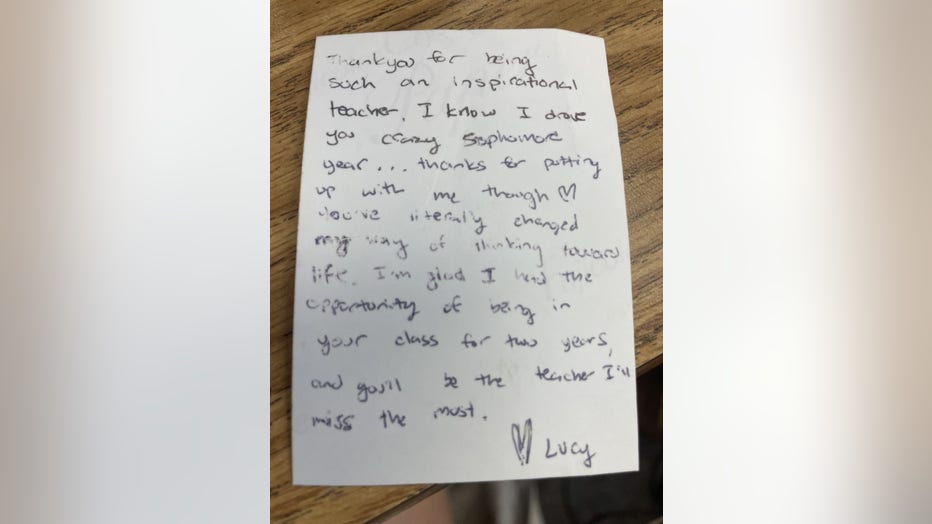 Thankyou for being
such an inspirational
teacher. I know I drove
you crazy Sophomore
year... thanks for putting
up with me though ♡
You've literally changed
my way of thinking toward
life. I'm glad I had the
opportunity of being in
your class for two years,
and you'll be the teacher I'll
miss the most.
♡ Lucy